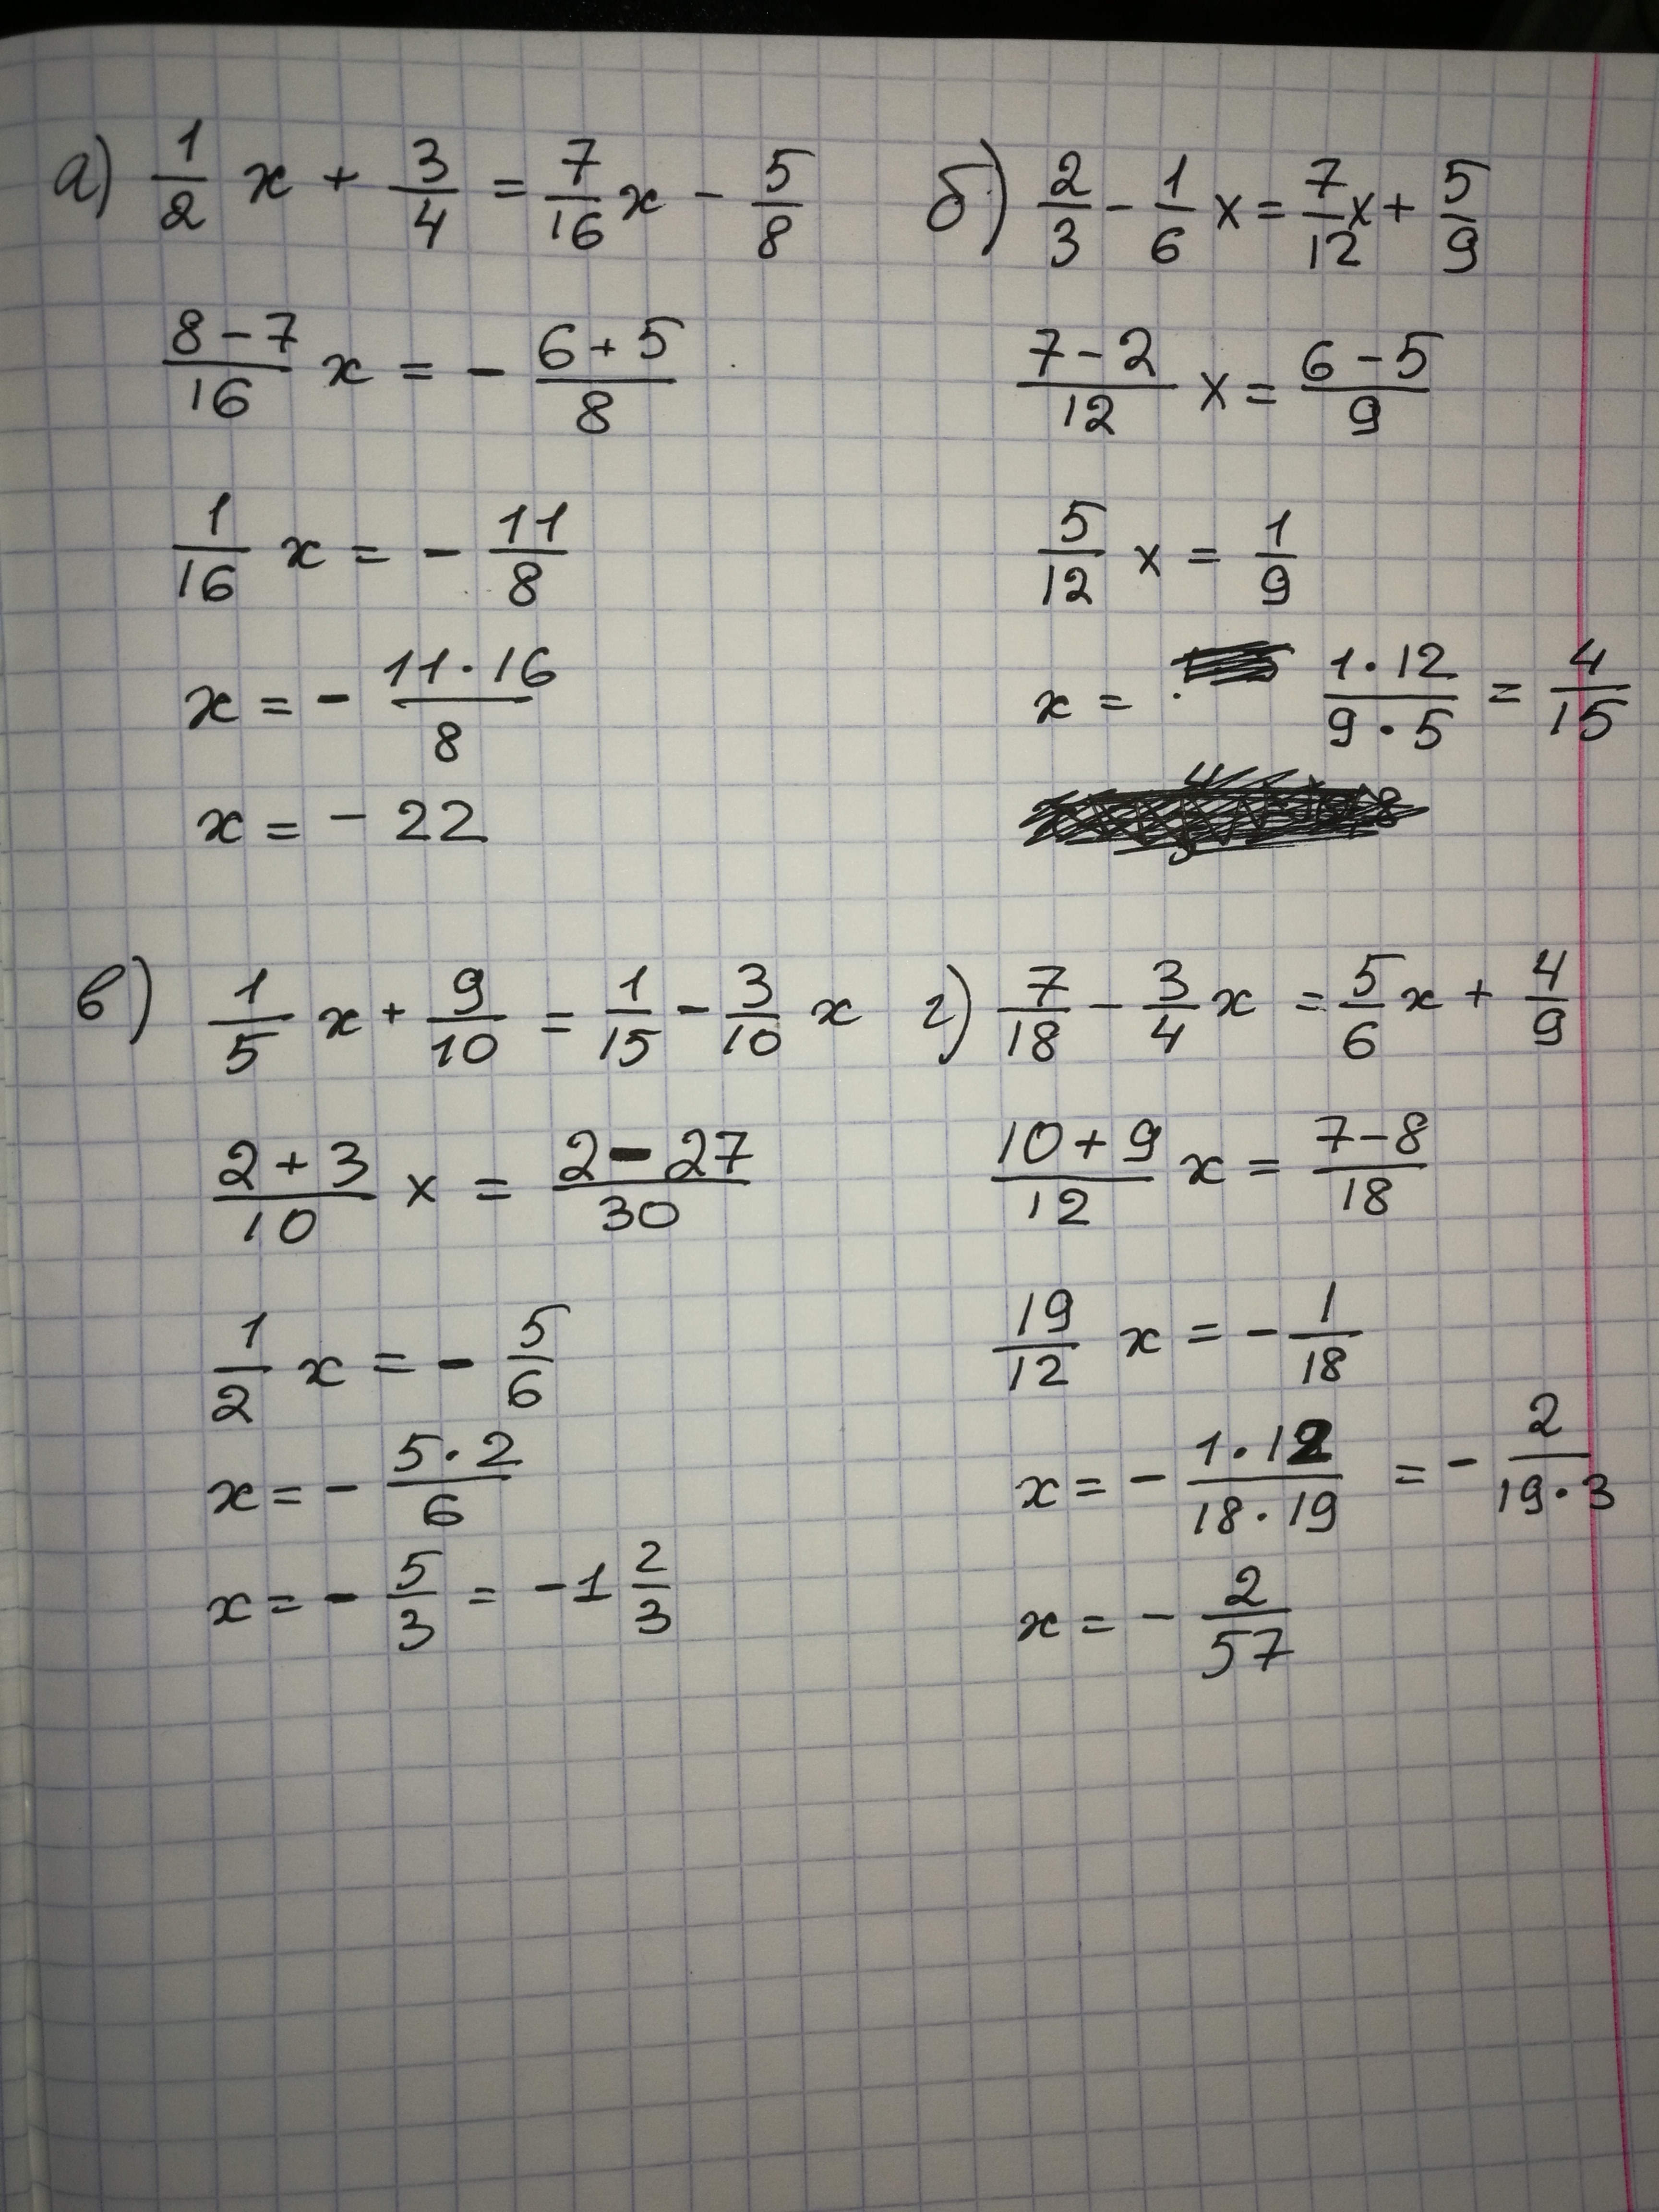 а) 1/2 x + 3/4 = 7/16 x - 5/8
8-7/16 x = - 6+5/8
1/16 x = - 11/8
x = - 11·16/8
x = - 22
б) 2/3 - 1/6 x = 7/12 x + 5/9
7-2/12 x = 6-5/9
5/12 x = 1/9
x = 1·12/9·5 = 4/15
в) 1/5 x + 9/10 = 1/15 - 3/10 x
2+3/10 x = 2-27/30
1/2 x = - 5/6
x = - 5·2/6
x = - 5/3 = -1 2/3
г) 7/18 - 3/4 x = 5/6 x + 4/9
10+9/12 x = 7-8/18
19/12 x = - 1/18
x = - 1·12/18·19 = - 2/19·3
x = - 2/57